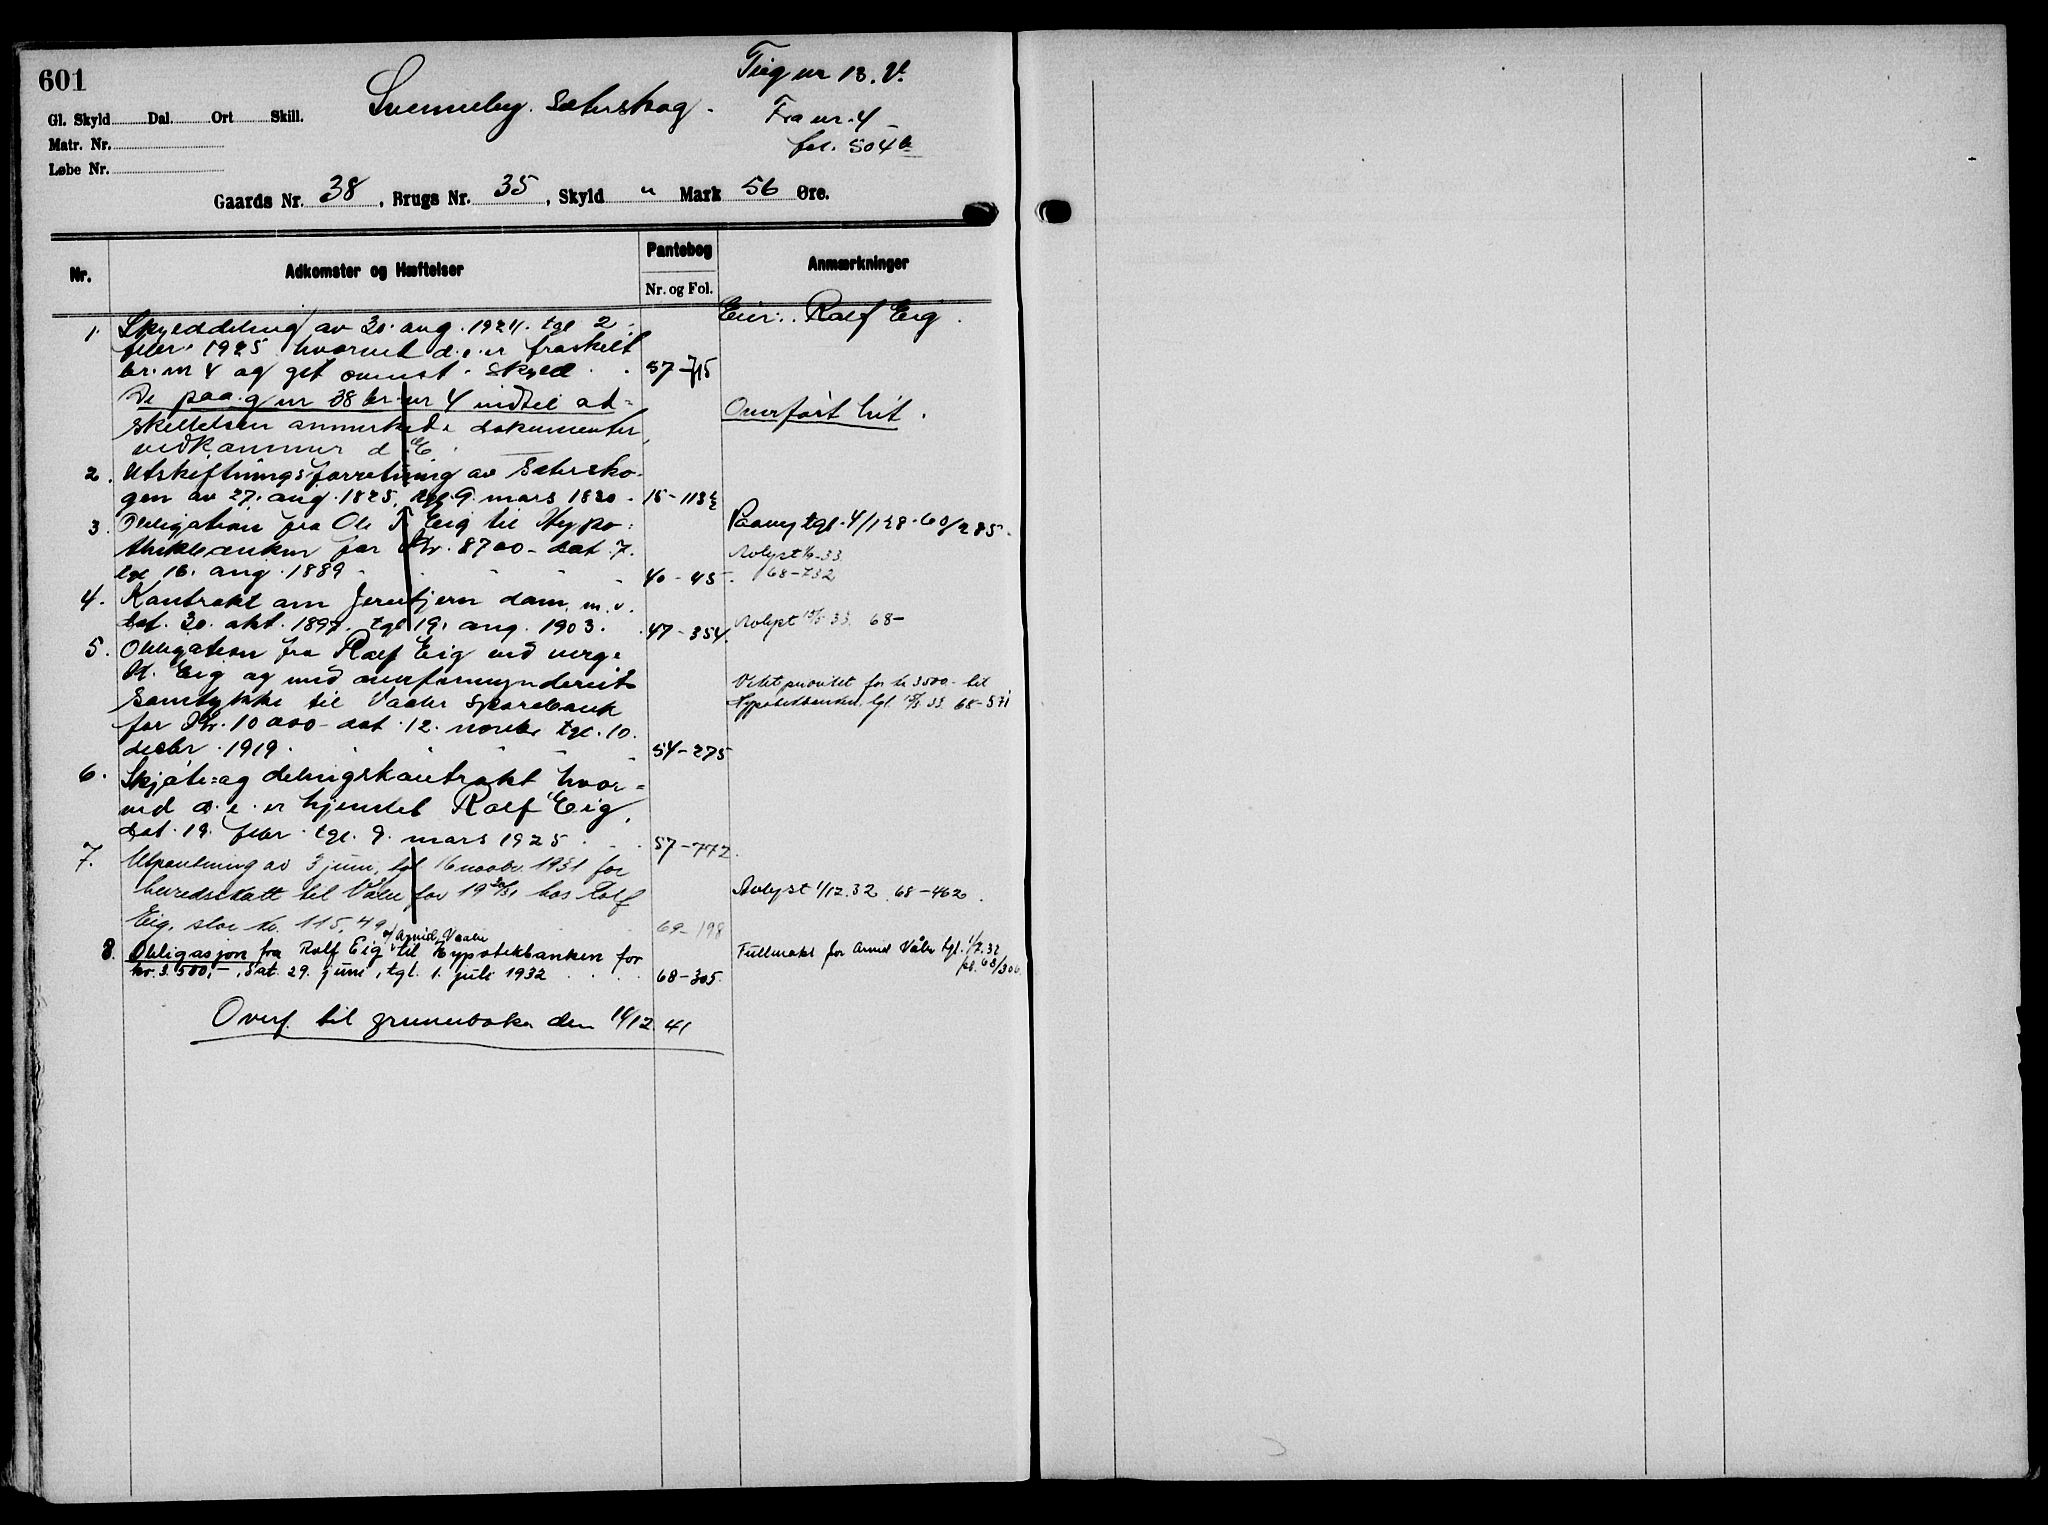 601
Svenneby. Sæterskog.
Teig nr 13. V.
Gl. Skyld Dal. Ort Skill.
Fra nr. 4
Matr. Nr.
fol. 504b
Løbe Nr.
Gaards Nr. 38, Brugs Nr. 35, Skyld " Mark 56 Øre.
Nr. Adkomster og Hæftelser Pantebog Nr. og Fol. Anmærkninger
Eier: Ralf Eig.
1. Skylddeling av 30. aug. 1924. tgl 2
febr. 1925 hvorved d. e. er fraskilt
br. nr 4 og git ovenst. skyld . . 57-715
De paa g nr 38 br. nr 4 indtil ad=
Overført hit.
skillelsen anmerkede dokumenter
vedkommer d. E.
2. Utskiftningsforretning av Sætersko-
gen av 27. aug. 1825, tgl. 9. mars 1820. 15-113
3. Obligation fra Ole Eig til Hypo=
Paany tgl. 4/1 28. 60/285.
thekbanken for Kr. 8700- dat. 7.
Avlyst 33.
tgl 16. aug. 1889 40-45.
68-732
4. Kontrakt om tjern dam m. v.
dat. 30. okt. 1897. tgl 19. aug. 1903. 47-354.
Avlyst 33. 68-
5. Obligation fra Ralf Eig ved verge
Eig og med overformynderiets
samtykke til Vaaler Sparebank
Vedt prioritet for kr 3500.- til
Hypotekbanken, tgl. 33. 68-571
for Kr. 10 000- dat. 12. novbr tgl. 10.
decbr. 1919. 54-275
6. Skjøte= og delingskontrakt, hvor=
ved d. e. er hjemlet Ralf Eig,
dat. 19. febr. tgl. 9. mars 1925 57-772.
7. Utpantning av 3 juni, tgl 16 novbr. 1931 for
herredsskatt til Våler for 19 30/31 hos Rolf
Avlyst 1/12.32 68-462.
Eig, stor kr. 115,49 62-198
o/ Arnid Vaaler
8. Obligasjon fra Rolf Eig til Hypotekbanken for
Fullmakt for Arnid Våler tgl. 1/7.32
kr. 3.500,-, dat. 29. juni, tgl. 1. juli 1932 . . . 68-305.
pb. 68/306.
Overf. til grunnboka den 16/12. 41